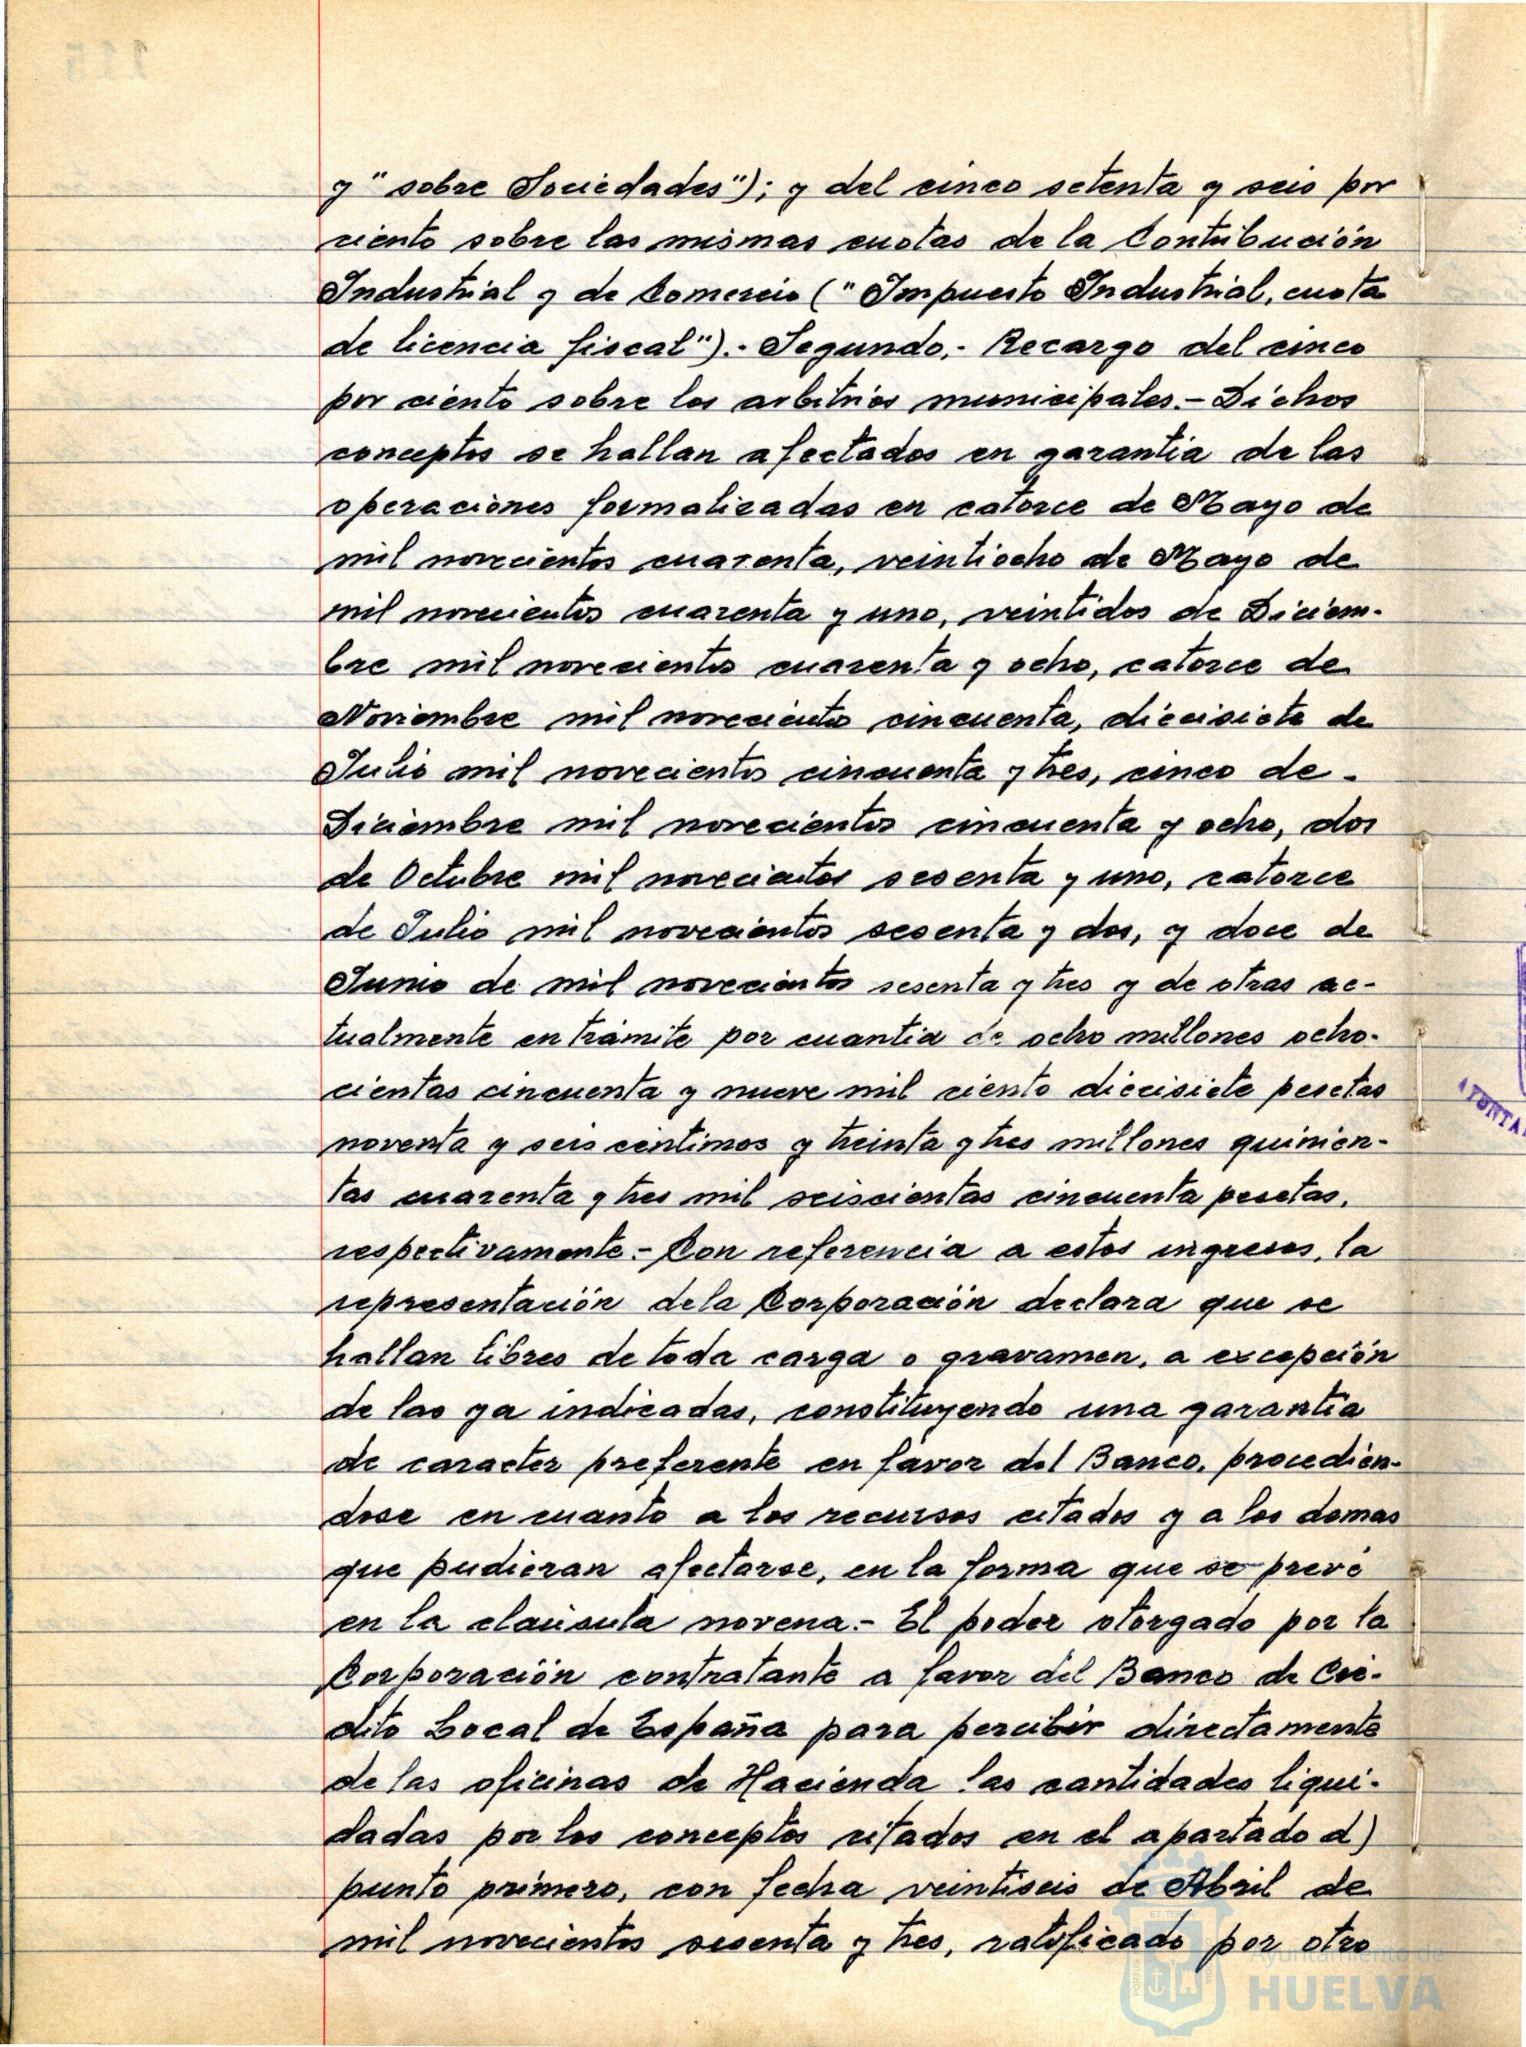 y "sobre Sociedades"); y del cinco setenta y seis por
ciento sobre las mismas cuotas de la Contribución
Industrial y de Comercio ("Impuesto Industrial, cuota
de licencia fiscal").- Segundo.- Recargo del cinco
por ciento sobre los arbitrios municipales.- Dichos
conceptos se hallan afectados en garantía de las
operaciones formalizadas en catorce de Mayo de
mil novecientos cuarenta, veintiocho de Mayo de
mil novecientos cuarenta y uno, veintidos de Diciem-
bre mil novecientos cuarenta y ocho, catorce de
Noviembre mil novecientos cincuenta, diecisiete de
Julio mil novecientos cincuenta y tres, cinco de -
Diciembre mil novecientos cincuenta y ocho, dos
de Octubre mil novecientos sesenta y uno, catorce
de Julio mil novecientos sesenta y dos, y doce de
Junio de mil novecientos sesenta y tres y de otras ac-
tualmente en trámite por cuantía de ocho millones ocho-
cientas cincuenta y nueve mil ciento diecisiete pesetas
noventa y seis centimos y treinta y tres millones quinien-
tas cuarenta y tres mil seiscientas cincuenta pesetas,
respectivamente.- Con referencia a estos ingresos, la
representación de la Corporación declara que se
hallan libres de toda carga o gravamen, a excepción
de las ya indicadas, constituyendo una garantía
de caracter preferente en favor del Banco, procedién-
dose en cuanto a los recursos citados y a los demas
que pudieran afectarse, en la forma que se prevé
en la claúsula novena.- El poder otorgado por la
Corporación contratante a favor del Banco de Cré-
dito Local de España para percibir directamente
de las oficinas de Hacienda las cantidades liqui-
dadas por los conceptos citados en el apartado d)
punto primero, con fecha veintiseis de Abril de
mil novecientos sesenta y tres, ratificado por otro
Ayuntamiento de
HUELVA